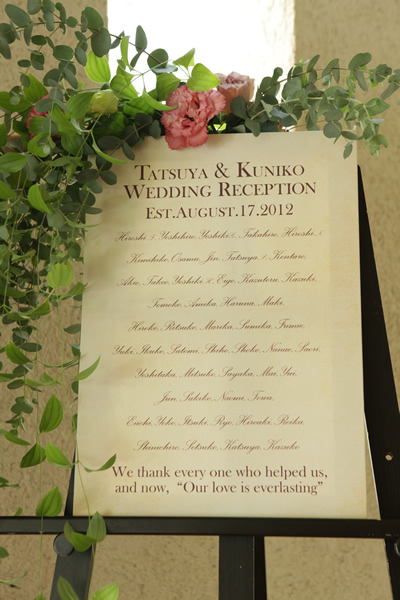 TATSUYA & KUNIKO
WEDDING RECEPTION
EST.AUGUST.17.2012
Hiroshi, Yoshihiro, Yoshiki, Takahiro, Hiroshi,
Kimihiko, Osamu, Jin, Tatsuya, Kentaro,
Akio, Takeo, Yoshiki, Eigo, Kazutoru, Kazuki,
Tomoko, Amika, Haruna, Maki,
Hiroko, Ritsuko, Mareka, Sumika, Fumie,
Yuko, Ikuko, Satomi, Shiho, Shoko, Nanae, Saori,
Yoshitaka, Mitsuko, Sayaka, Mai, Yui,
Jun, Sakiko, Naomi, Towa,
Euchi, Yoko, Itsuki, Ryo, Hiroaki, Reika,
Shinichiro, Setsuko, Katsuya, Kazuko
We thank every one who helped us,
and now, “Our love is everlasting”